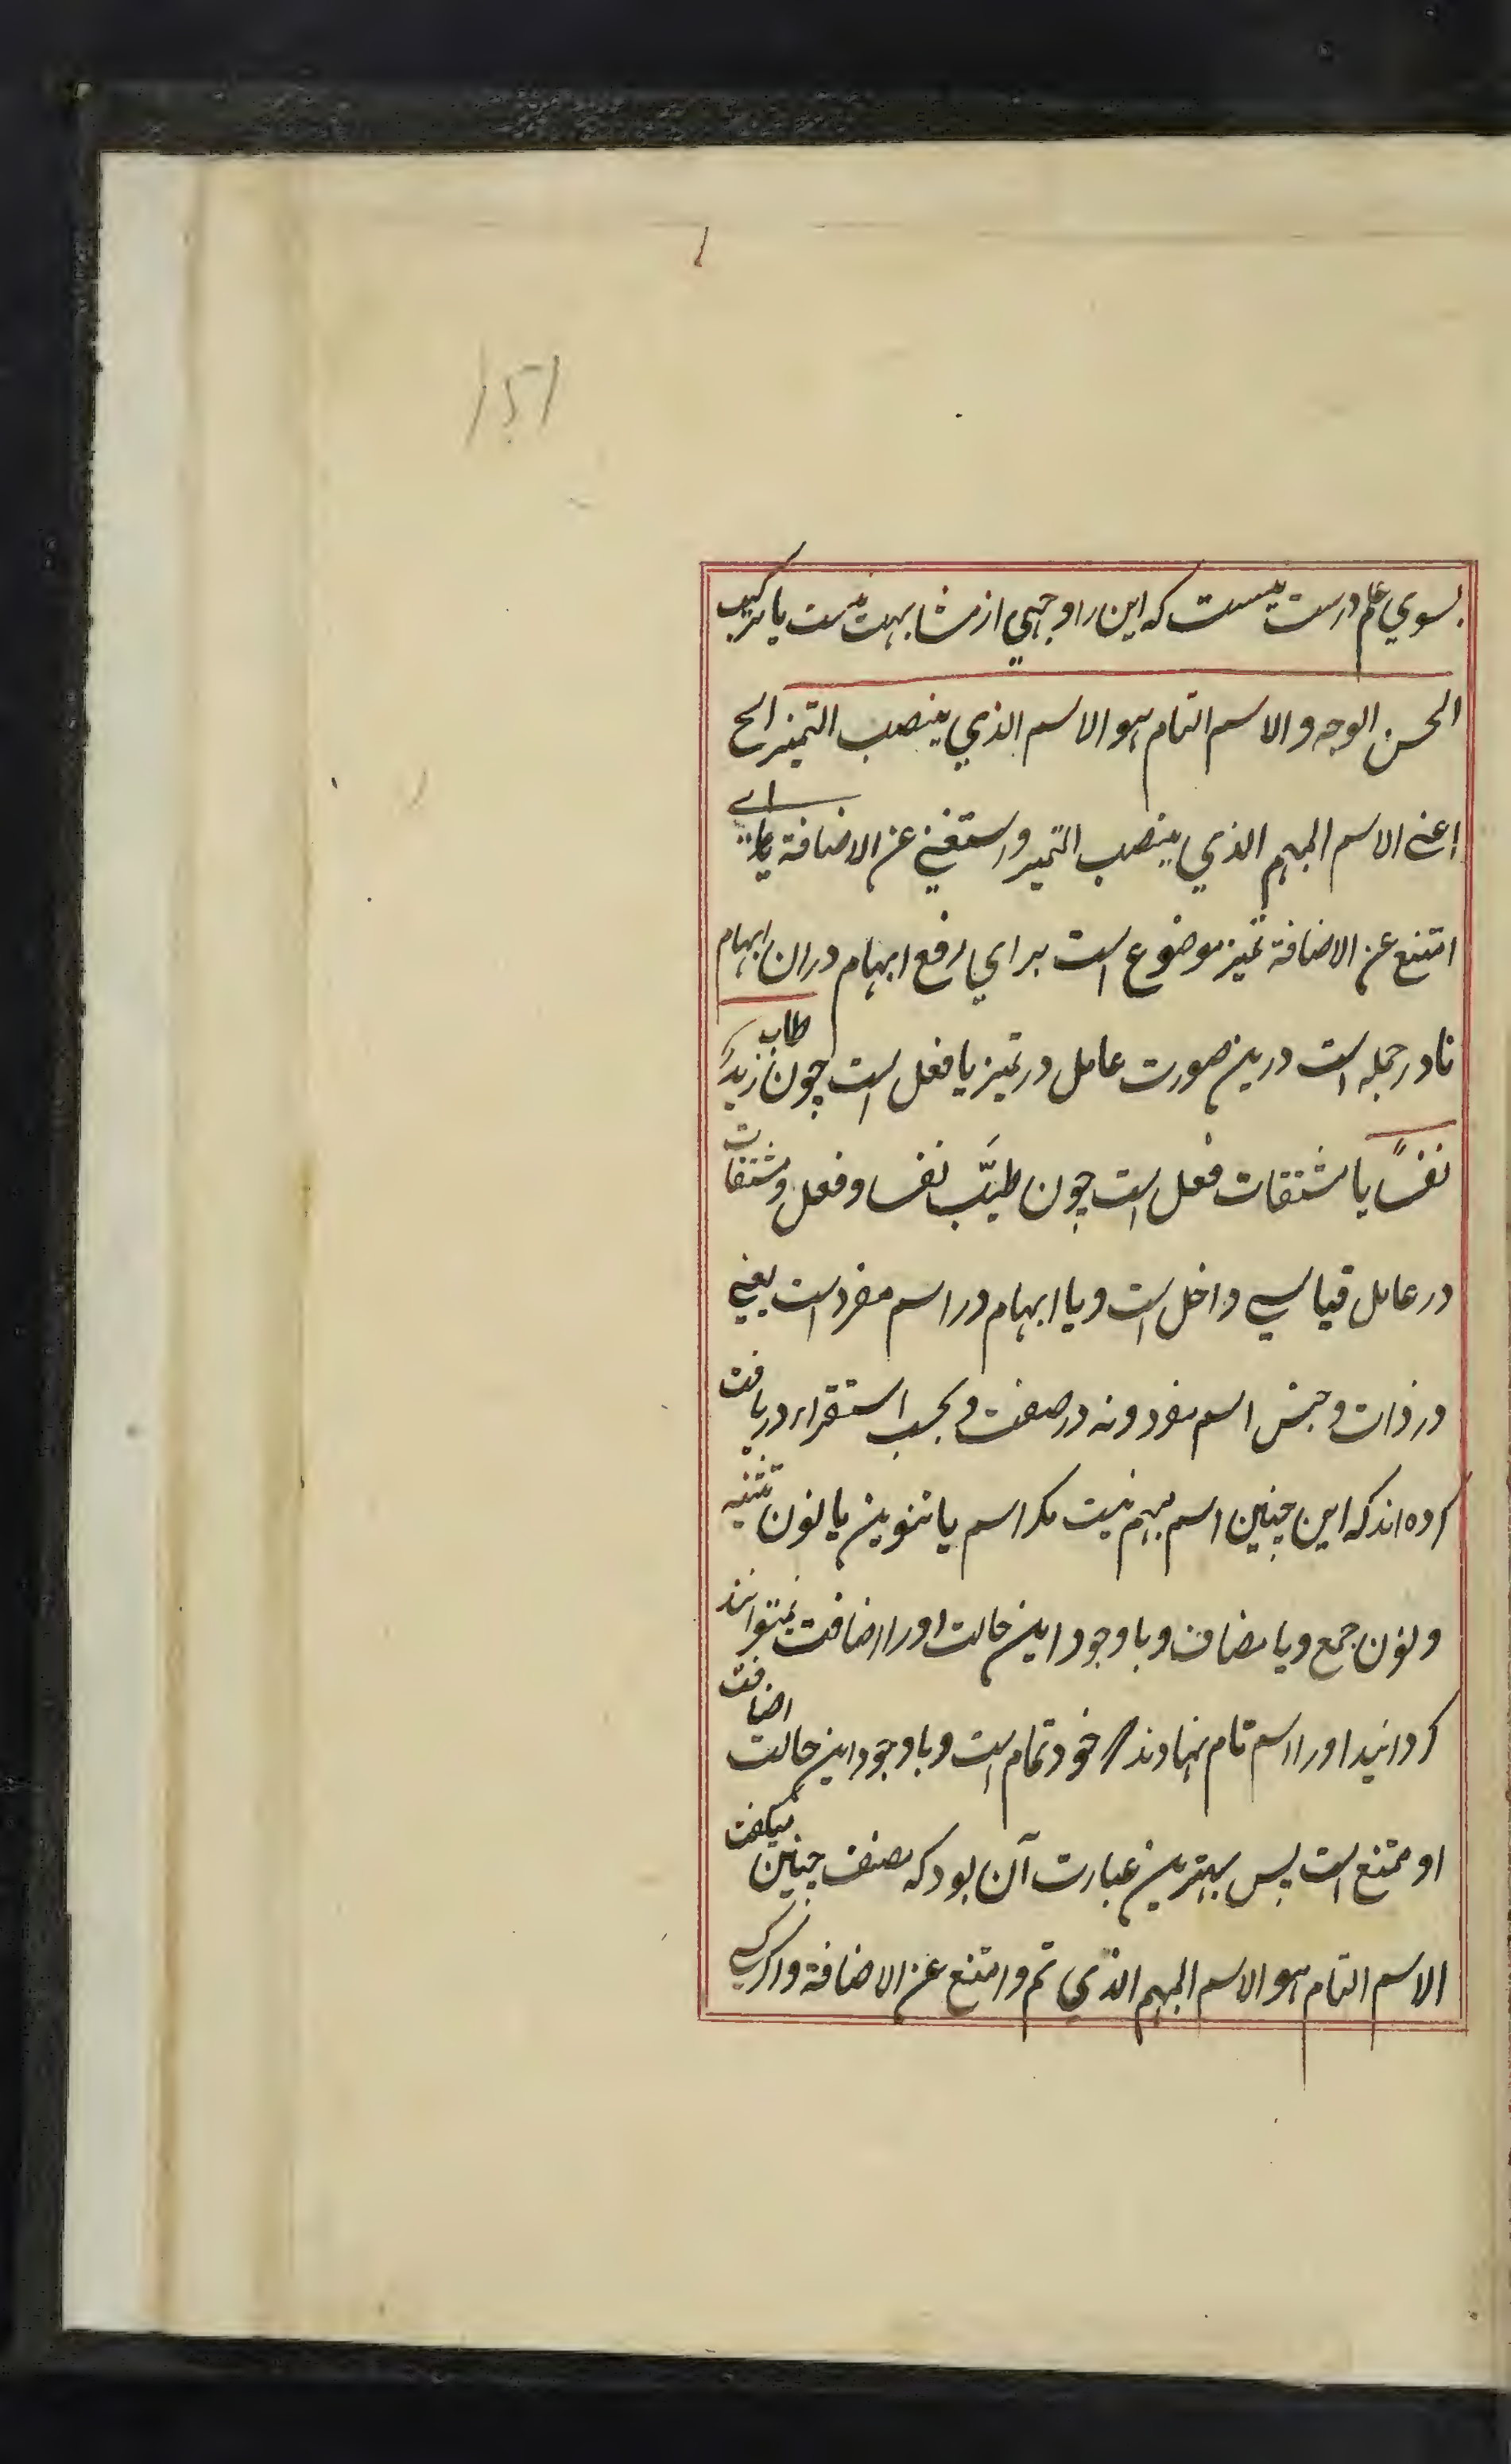 151
بسوي علم درست نيست که اين را وجهي از مشابهت نيست با ترکيب
الحسن الوجه والاسم التام هو الاسم الذي ينصب التميز الخ
اعنے الاسم المبهم الذي ينصب التميز واستغني عن الاضافة اے
امتنع عن الاضافة تميز موضوع است براي رفع ابهام دران ابهام
نا در جمله است درين صورت عامل در تميز يا فعل است چون طاب زيدٌ
نفسًا يا مشتقات فعل است چون طيّب نفسا و فعل و مشتقات
در عامل قياسي داخل است و يا ابهام در اسم مفرد است يعني
در ذات و جنس اسم مفرد و نه در صفت و بحسب استقراء دريافت
کرده اند که اين چنين اسم مبهم نيست مکر اسم با تنوين يا نون تثنيه
و نون جمع و يا مضاف و با وجود اين حالت او را اضافت نميتوانند
کردانيد او را اسم تام نهادند خود تمام است و با وجود اين حالت اضافت
او ممتنع است پس بهترين عبارت آن بود که مصنف چنين ميکفت
الاسم التام هو الاسم المبهم الذي تم وامتنع عن الاضافة و اکر کسے